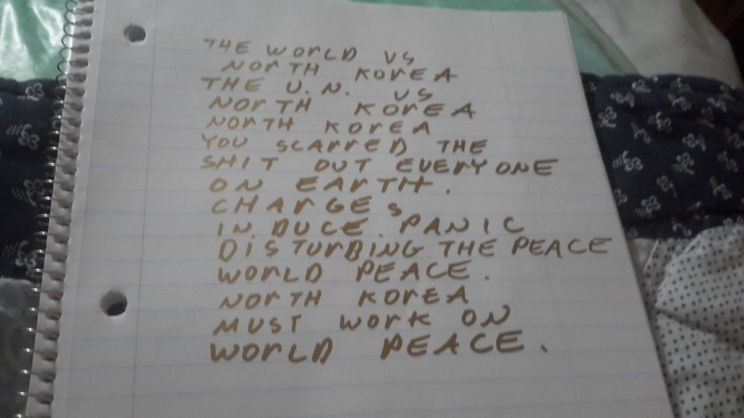 THE WORLD VS
NORTH KOREA
THE U.N. VS
NORTH KOREA
NORTH KOREA
YOU SCARRED THE
SHIT OUT EVERYONE
ON EARTH.
CHARGES
IN DUCE PANIC
DISTURBING THE PEACE
WORLD PEACE.
NORTH KOREA
MUST WORK ON
WORLD PEACE.